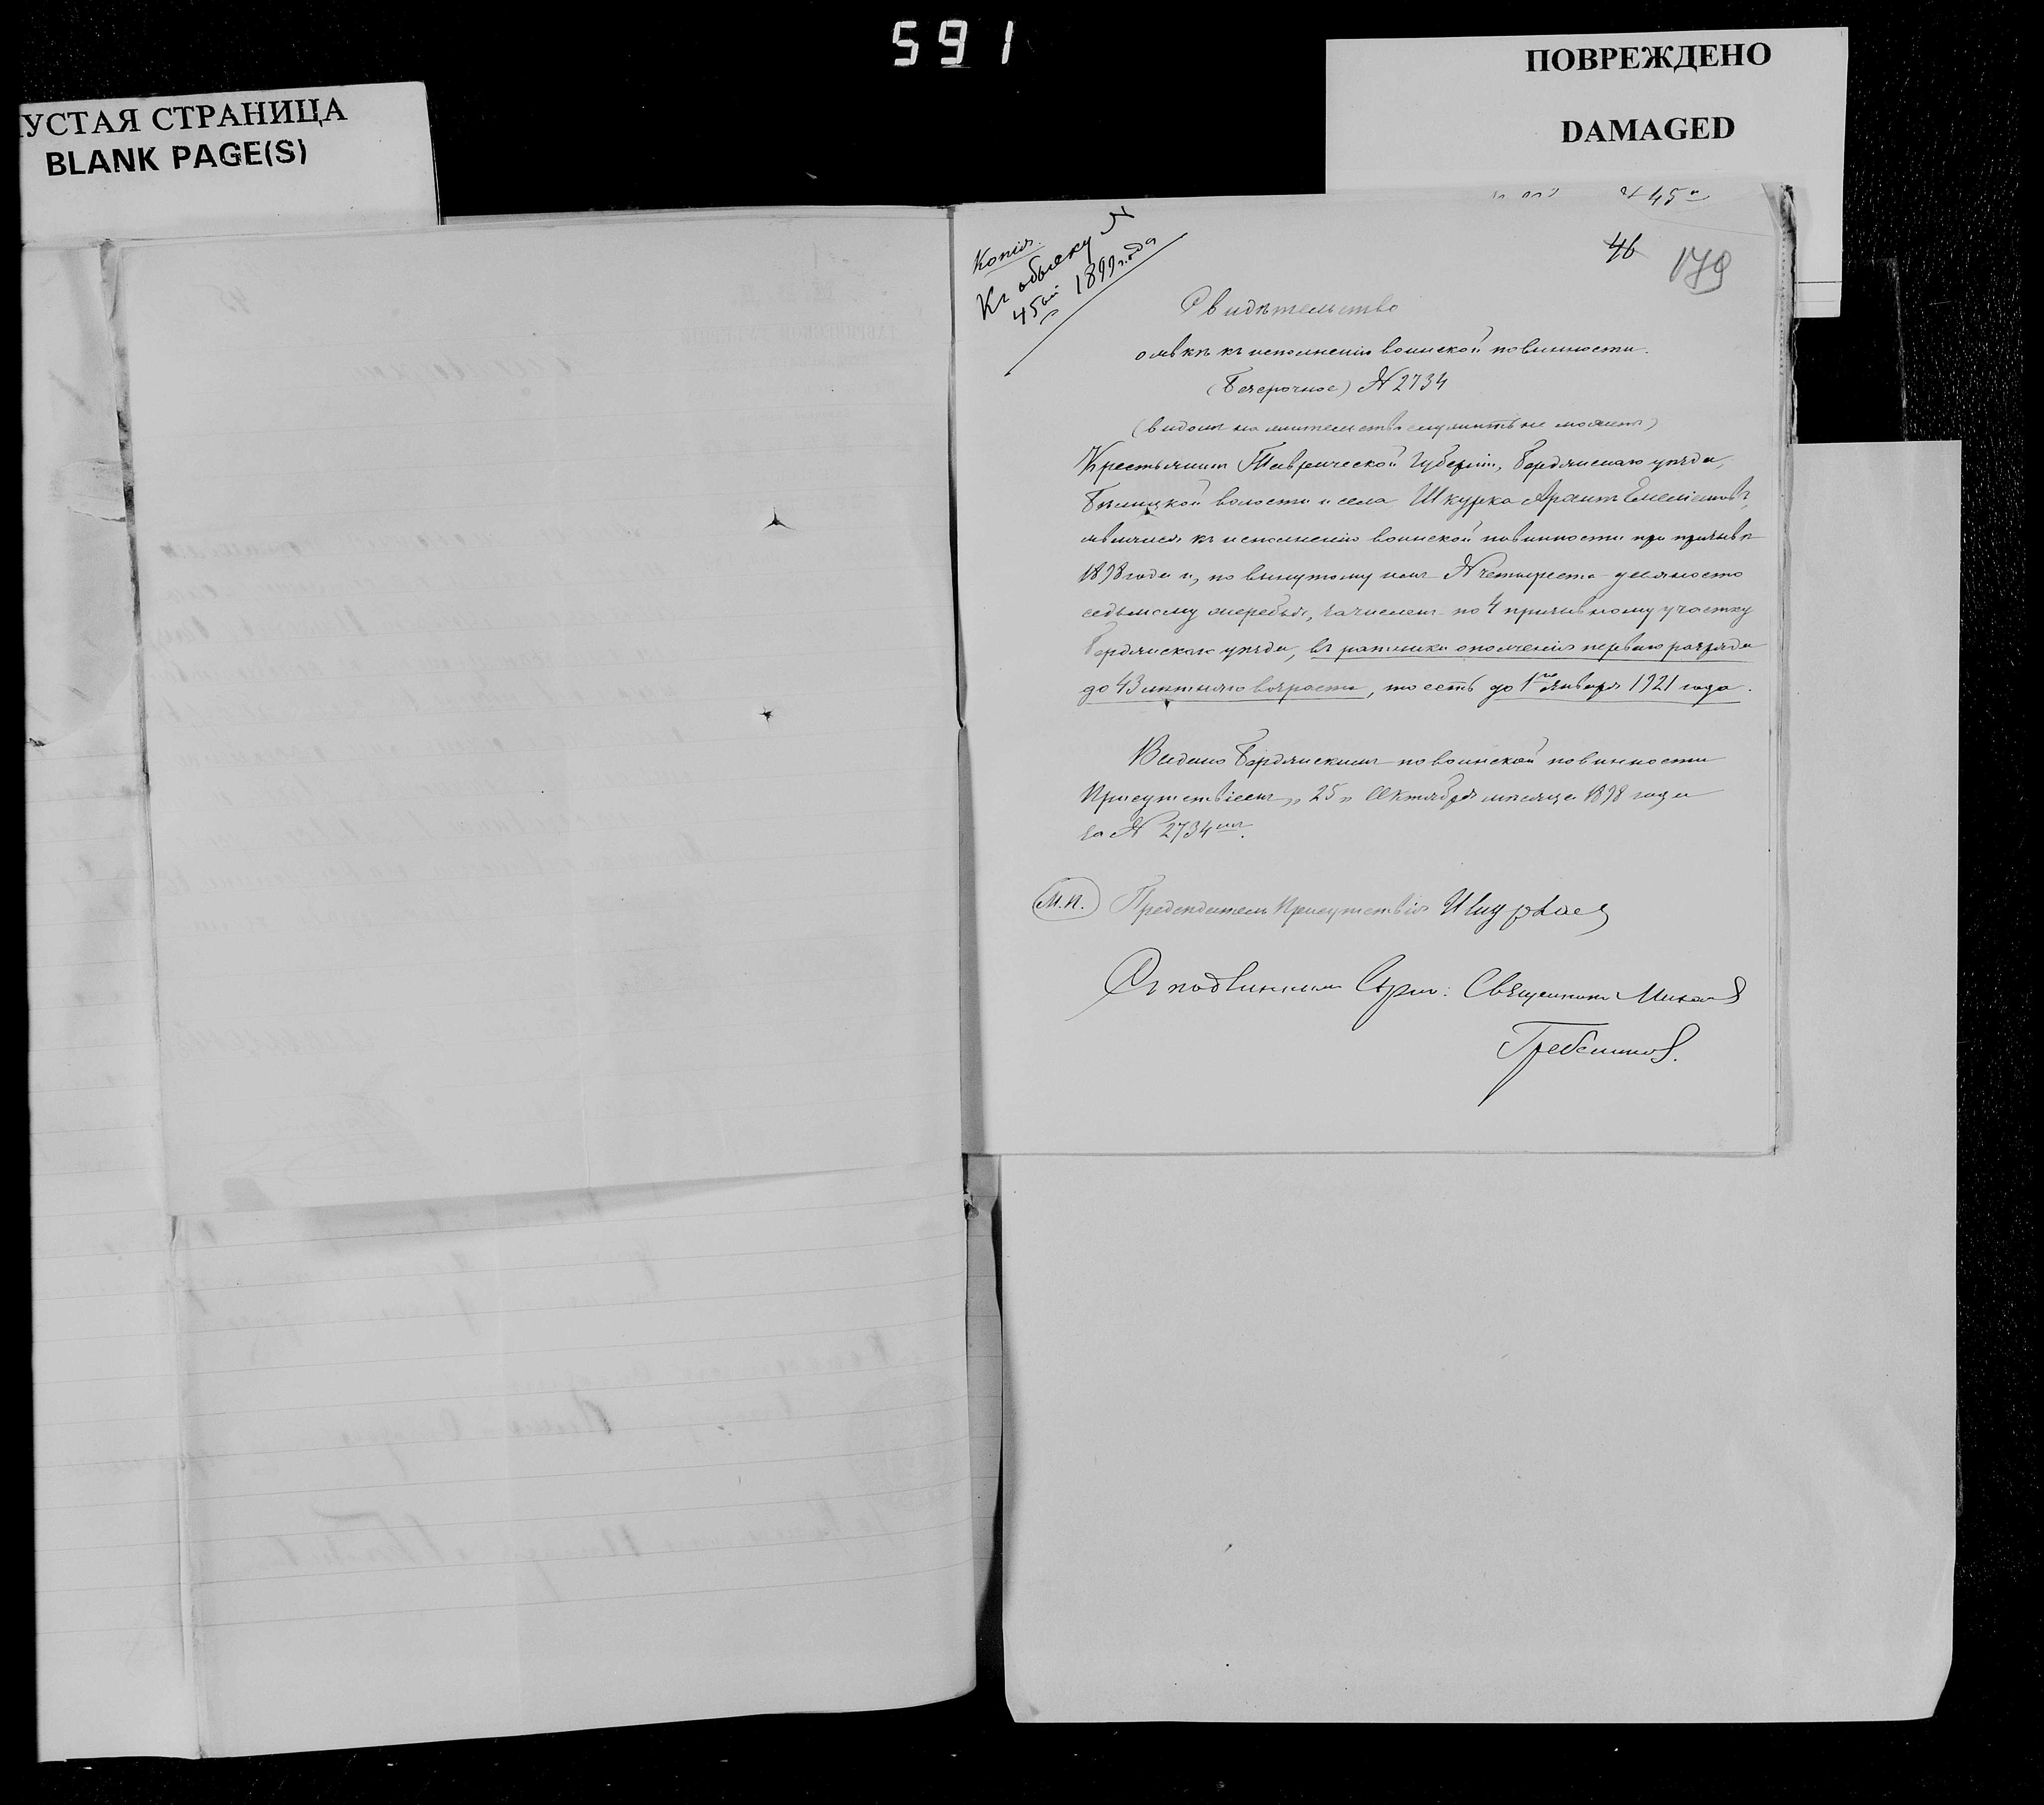 591
ПУСТАЯ СТРАНИЦА
BLANK PAGE(S)
ПОВРЕЖДЕНО
DAMAGED
45
46
179
Копія.
Къ обыску №
45ый 1899 года
Свидѣтельство
о явкѣ къ исполненію воинской повинности.
(Безсрочное) № 2734
(видомъ на жительство служить не можетъ)
Крестьянинъ Таврической Губерніи, Бердянскаго уѣзда,
волости и села Шкурка
явился къ исполненію воинской повинности при призывѣ
1898 года и, по вынутому имъ № четыреста девяносто
седьмому жеребья, зачисленъ по 4 призывному участку
Бердянскаго уѣзда, въ ратники ополченія перваго разряда
до 43 лѣтняго возраста, то есть до 1го Января 1921 года.
Выдано Бердянскимъ по воинской повинности
Присутствіемъ „ 25 „ Октября мѣсяца 1898 года
за № 2734мъ.
М.П. Предсѣдатель Присутствія
Съ подлиннымъ вѣрно: Священникъ Михаилъ
Гребенниковъ.